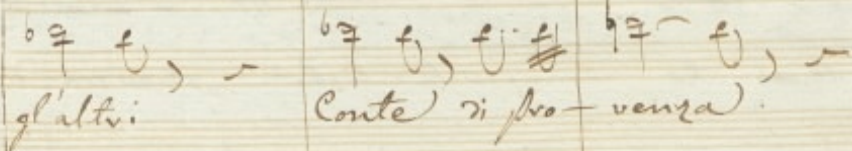 gl'altri Conte di Pro- venza.